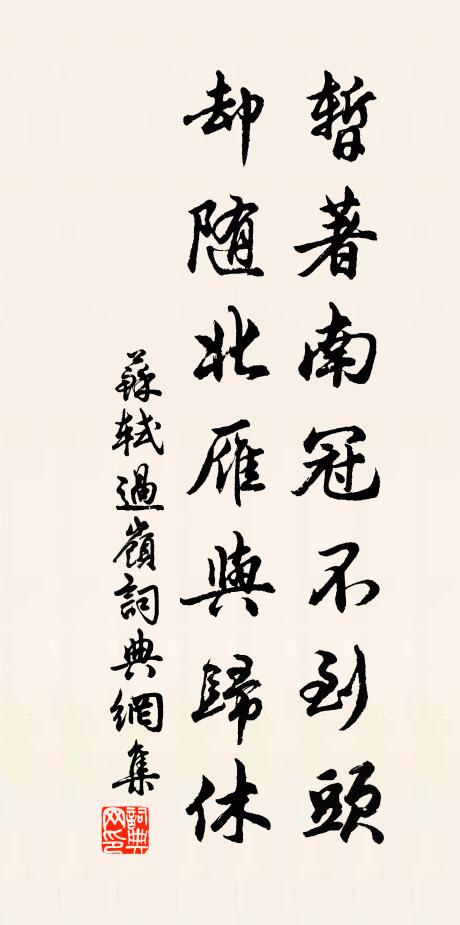 暫著南冠不到頭
却隨北雁與歸休
蘇軾過嶺詞典網集
詞典网印